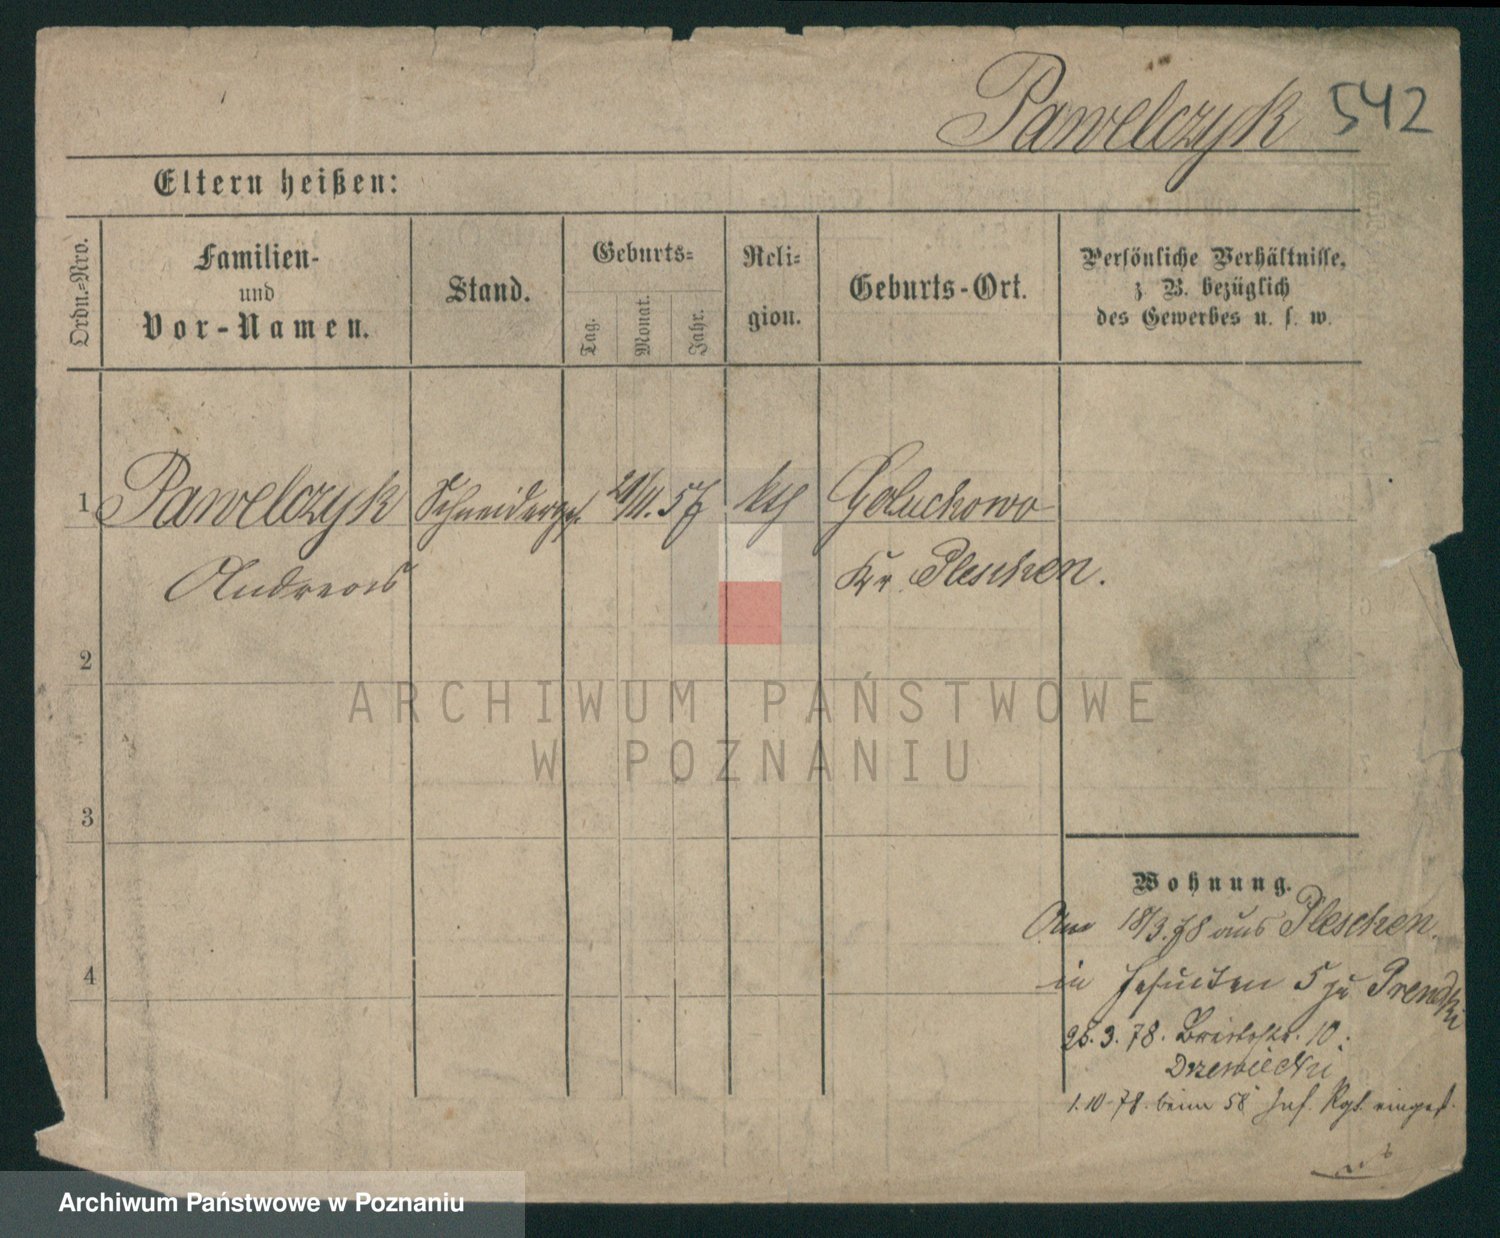 Pawelczyk 542
Eltern heißen:
Ordn.-Nro.
Familien-
und
Vor-Namen.
Stand.
Geburts-
Tag.
Monat.
Jahr.
Reli-
gion.
Geburts-Ort.
Persönliche Verhältnisse,
z. B. bezüglich
des Gewerbes u. s. w.
1 Pawelczyk Schneiderges. 21/11. 57 kth Goluchowo
Andreas Kr. Pleschen.
2
ARCHIWUM PAŃSTWOWE
W POZNANIU
3
Wohnung.
18/3.78 aus Pleschen.
4
in Jesuiten 5 zu Prendki
28.3.78. Breitestr. 10.
Drzewiecki
1.10.78. beim 58 Inf. Rgt. eingest.
Archiwum Państwowe w Poznaniu